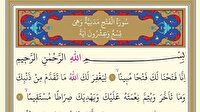 سورة الفتح مدنية وهي
تسع وعشرون آية
بِسْمِ اللّٰهِ الرَّحْمٰنِ الرَّحِيمِ
إِنَّا فَتَحْنَا لَكَ فَتْحًا مُبِينًا لِيَغْفِرَ لَكَ اللّٰهُ مَا تَقَدَّمَ مِنْ ذَنْبِكَ
وَمَا تَأَخَّرَ وَيُتِمَّ نِعْمَتَهُ عَلَيْكَ وَيَهْدِيَكَ صِرَاطًا مُسْتَقِيمًا